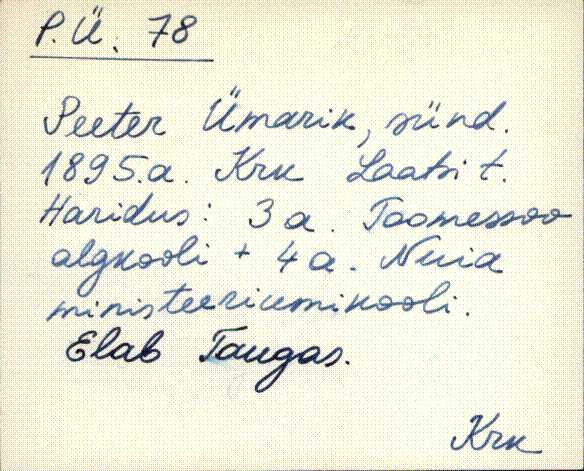 P.Ü. 78
Peeter Ümarik, sünd.
1895.a. Krk Laatsi t.
Haridus: 3 a. Toomessoo
algkooli + 4 a. Nuia
ministeeriumikooli.
Elab Taugas.
Krk